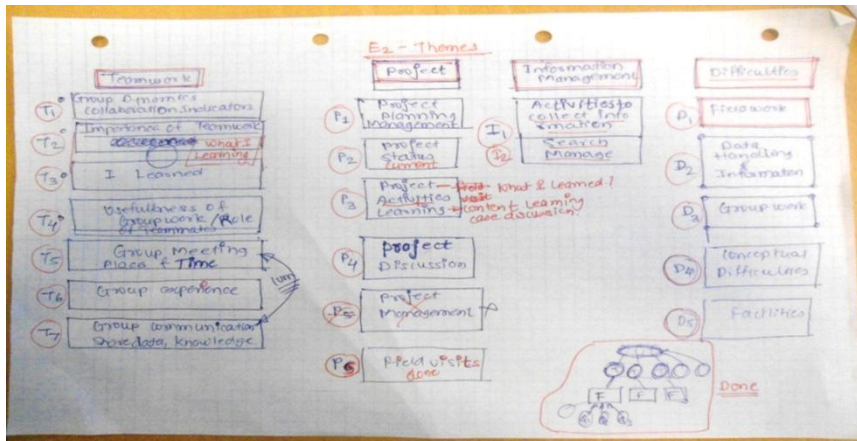 E2 - Themes
Teamwork
T1
Group Dynamics
collaboration Indicators
T2
Importance of Teamwork
What I
Learning
T3
I Learned
T4
Usefullness of
Group work / Role
of Teammates
T5
Group Meeting
Place & Time
T6
Group experience
T7
Group communication
Share data, knowledge
Project
P1
Project
Planning
Management
P2
project
Status
current
P3
Project
Activities
Learning
What I Learned?
visit
content Learning
case discussion?
P4
project
Discussion
P5
Project
Management
P6
Field visits
done
Information
Management
I1
Activities to
collect Info
rmation
I2
Search
Manage
Difficulties
D1
Fieldwork
D2
Data
Handling
&
Information
D3
Group work
D4
Conceptual
Difficulties
D5
Facilities
F F F
Done